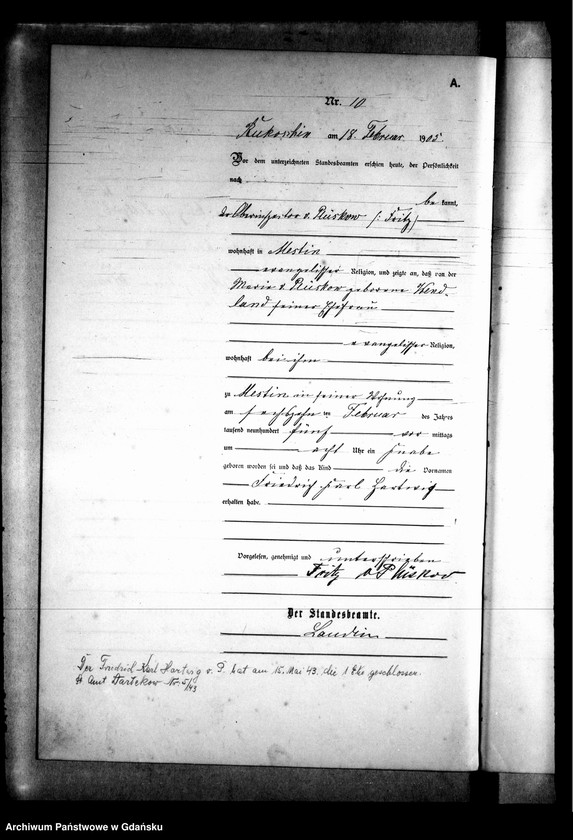 A.
Nr. 10
Rukoschin am 18. Februar 1905
Vor dem unterzeichneten Standesbeamten erschien heute, der Persönlichkeit
nach
be kannt,
der Oberinspektor v. Plüskow /: Fritz
wohnhaft in Mestin
evangelischer Religion, und zeigte an, daß von der
Marie v. Plüskow geborene Wend-
land seiner Ehefrau
evangelischer Religion,
wohnhaft bei ihm
zu Mestin in seiner Wohnung
am sechszehn ten Februar des Jahres
tausend neunhundert fünf vor mittags
um acht Uhr ein Knabe
geboren worden sei und daß das Kind die Vornamen
Friedrich Karl Hartwig
erhalten habe.
Vorgelesen, genehmigt und unterschrieben
Fritz v Plüskow
Der Standesbeamte.
Der Friedrich Karl Hartwig v. P. hat am 15. Mai 43. die 1 Ehe geschlossen.
St Amt Nr. 5/43
Archiwum Państwowe w Gdańsku